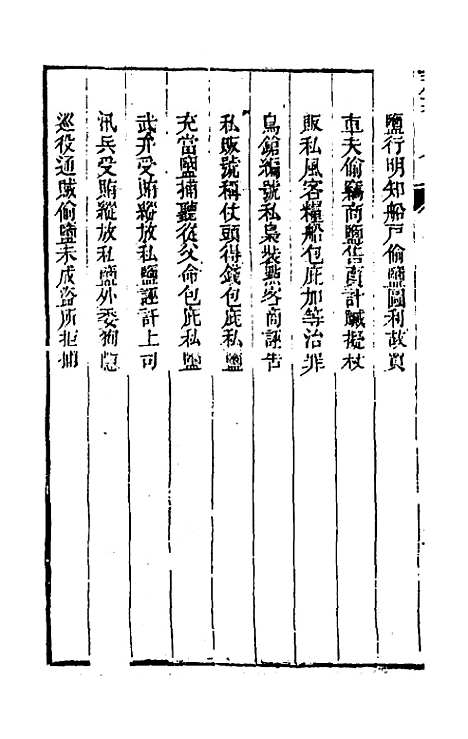 鹽行明知船戶偷鹽圖利故買
車夫偷竊商鹽售賣計贓擬杖
販私風客糧船包庇加等治罪
鳥鎗編號私梟裝點客商誣告
私販號稱仗頭得錢包庇私鹽
充當鹽捕聽從父命包庇私鹽
武弁受賄縱放私鹽誣訐上司
汛兵受賄縱放私鹽外委徇隱
巡役通賊偷鹽未成盜所拒捕